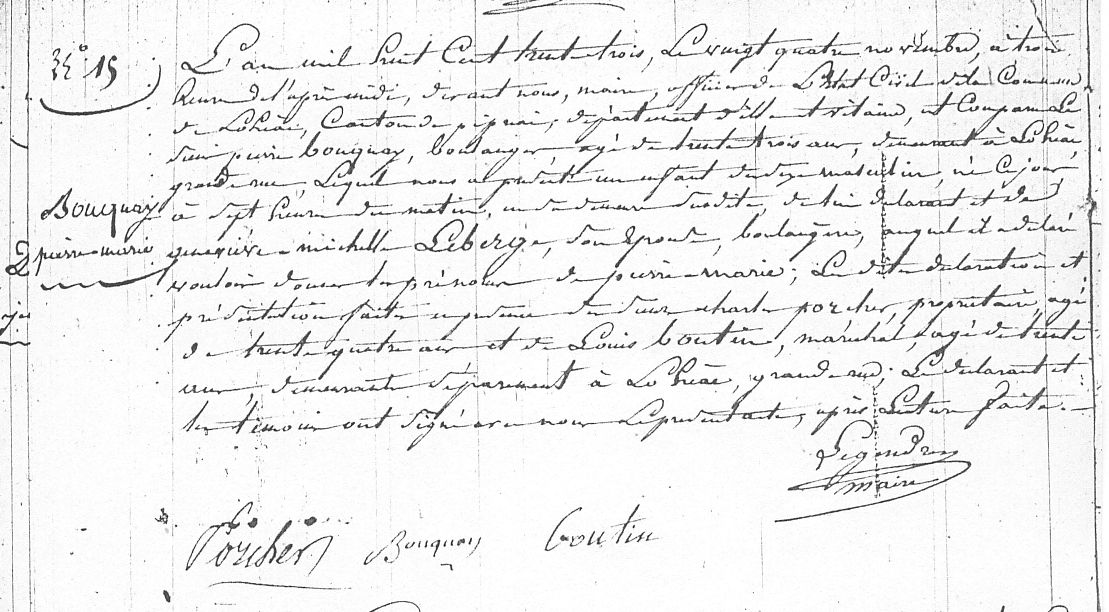 N.° 15
Bouquay
pierre-marie
L'an mil huit Cent trente trois, Le vingt quatre novembre, à trois
heure de l'après midi, devant nous, maire, officier de L'Etat Civil de la Commune
de Lohéac, Canton de pipriac, département d'ille et vilaine, est Comparu Le
sieur pierre bouquay, boulanger, agé de trente trois ans, demeurant à Lohéac,
grande rue, Lequel nous a présenté un enfant du sexe masculin, né Ce jour,
à sept heure du matin, en sa demeure susdite, de lui déclarant et de
geneviève michelle Leberge, son épouse, boulangère, auquel il a déclaré
vouloir donner les prénoms de pierre-marie; Les dites déclaration et
présentation faites en présence des sieurs charles porcher, propriétaire, agé
de trente quatre ans et de Louis boutin, maréchal, agé de trente
ans, demeurants séparément à Lohéac, grande rue; Le déclarant et
les témoins ont signé avec nous Le présent acte, après Lecture faite.
Legendre
maire
Porcher Bouquay Boutin